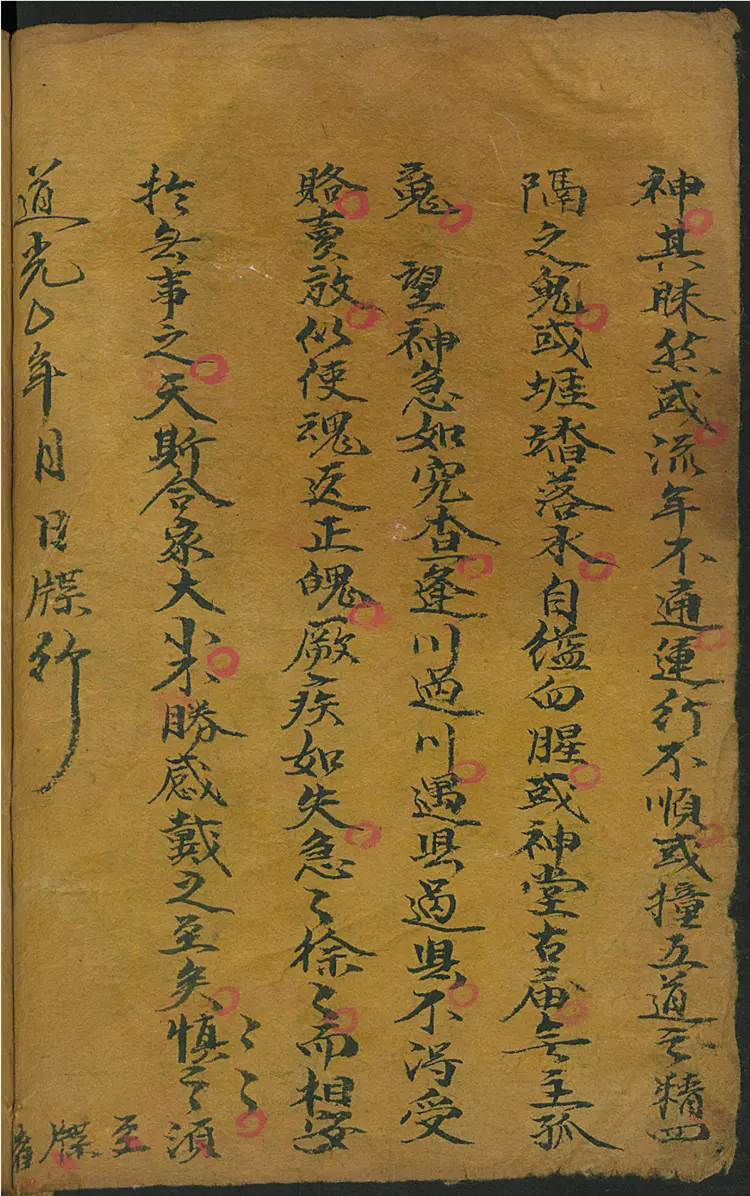 神其昧然或流年不通運行不順或撞五道之精四
隔之鬼或堐踏落水自缢血腥或神堂古庙無主孤
鬼 望神急如究查逢川過川遇县過县不淂受
賂賣放似使魂返正魄厥疾如失急〻徐〻而相安
於無事之天斯合家大小不勝感戴之至矣慎之〻〻須
至牒者
道光 年月日牒行